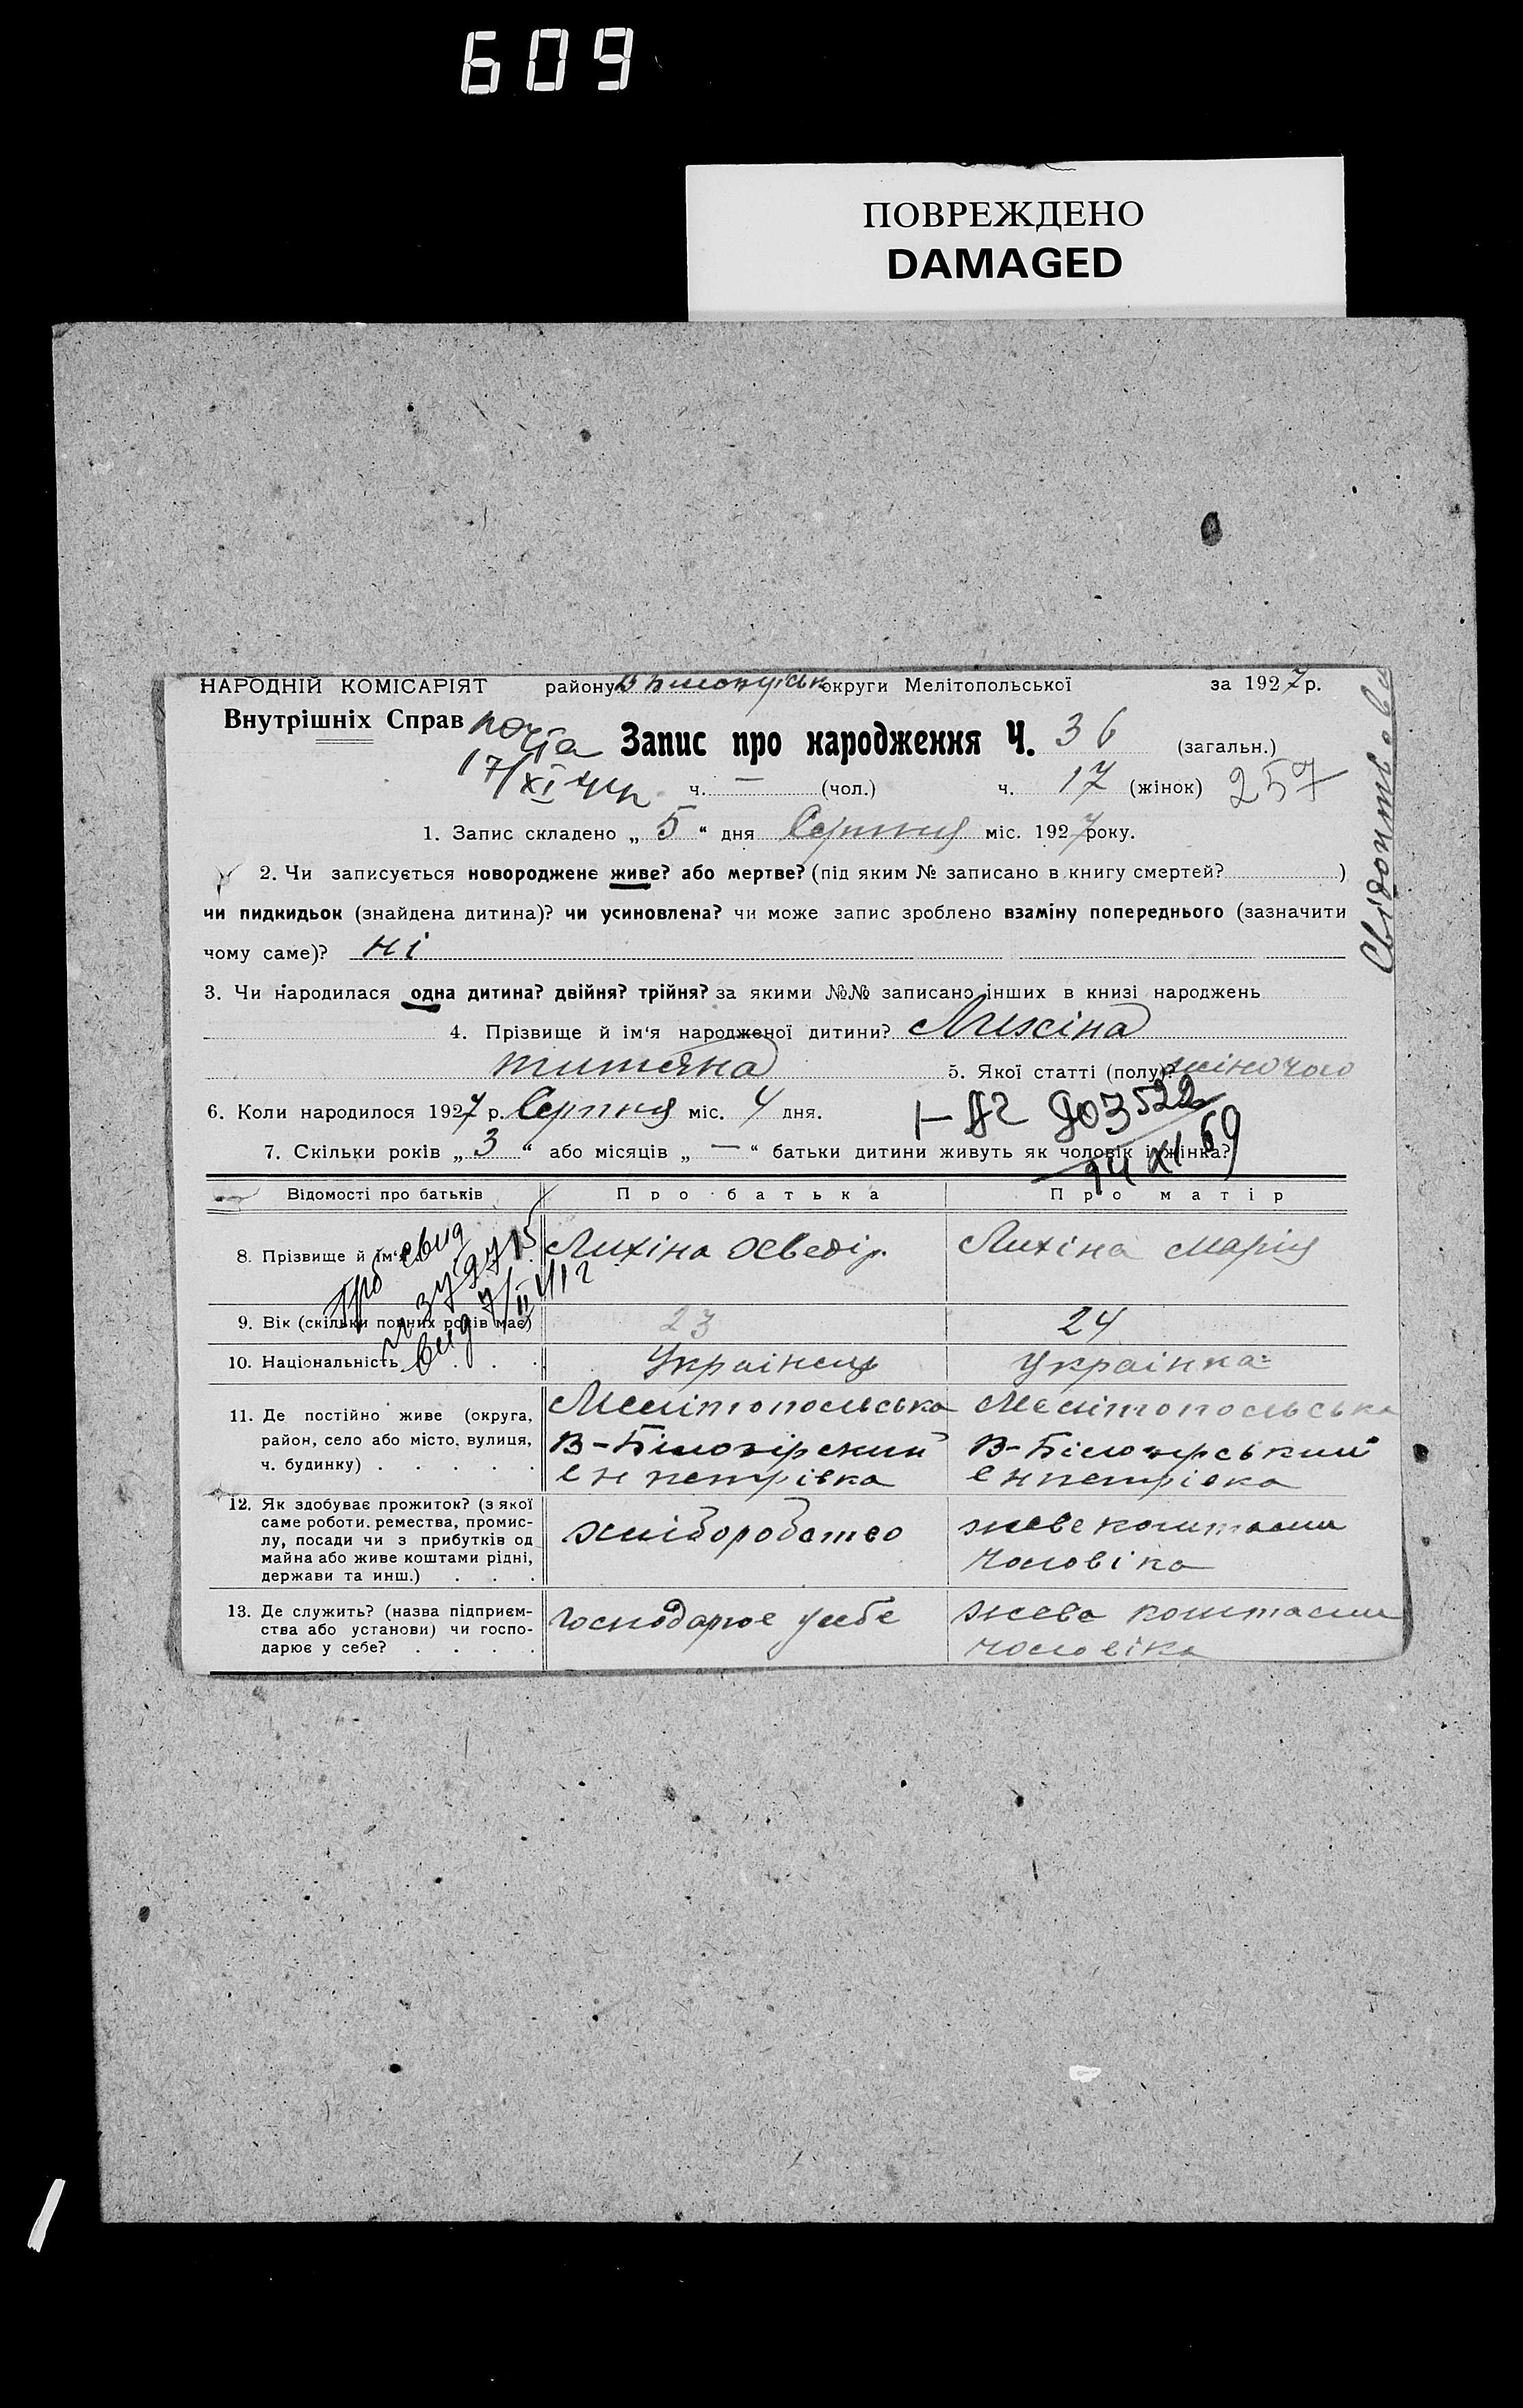 609
ПОВРЕЖДЕНО
DAMAGED
НАРОДНІЙ КОМІСАРІЯТ району округи Мелітопольської за 1927 р.
Внутрішніх Справ
Запис про народження Ч. 36 (загальн.)
17/XI ч. — (чол.) ч. 17 (жінок) 257
1. Запис складено „ 5 “ дня Серпня міс. 1927 року.
2. Чи записується новороджене живе? або мертве? (під яким № записано в книгу смертей? )
чи пидкидьок (знайдена дитина)? чи усиновлена? чи може запис зроблено взаміну попереднього (зазначити
чому саме)? ні
3. Чи народилася одна дитина? двійня? трійня? за якими №№ записано інших в книзі народжень
4. Прізвище й ім‘я народженої дитини? Лихіна
титяна 5. Якої статті (полу)? жіночого
6. Коли народилося 1927 р. Серпня міс. 4 дня.
7. Скільки років „ 3 “ або місяців „ — “ батьки дитини живуть як чоловік і жінка?
Відомості про батьків Про батька Про матір
8. Прізвище й ім‘я Лихіна Лихіна Марія
9. Вік (скільки повних років має) 23 24
10. Національність Українець Українка
11. Де постійно живе (округа, Мелітопольська Мелітопольська
район, село або місто, вулиця, В-Білозірский В-Білозірський
ч. будинку) с нпетрівка с нпетрівка
12. Як здобуває прожиток? (з якої
саме роботи, ремества, промис- хліборобство живе коштами
лу, посади чи з прибутків од
майна або живе коштами рідні, чоловіка
держави та инш.)
13. Де служить? (назва підприєм- господарює усебе живе коштами
ства або установи) чи госпо-
дарює у себе? чоловіка